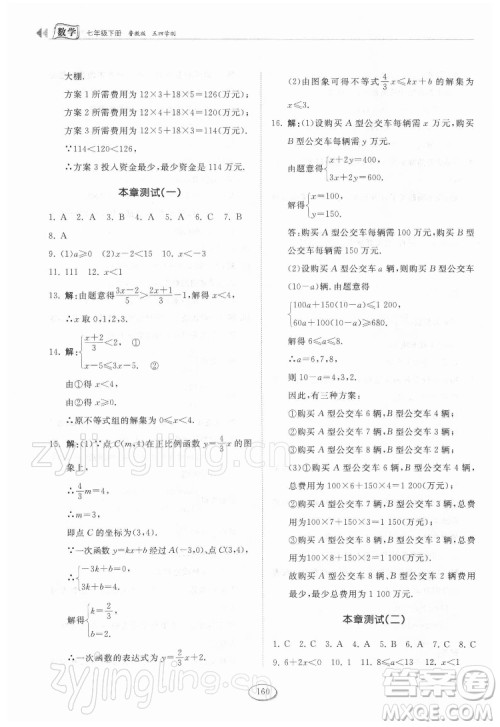 数学 七年级下册 鲁教版 五四学制
大棚.
方案 1 所需费用为 12×3+18×5=126(万元)
方案 2 所需费用为 12×4+18×4=120(万元)
方案 3 所需费用为 12×5+18×3=114(万元)
∵114<120<126,
∴方案 3 投入资金最少,最少资金是 114 万元.
本章测试(一)
1. A 2. A 3. A 4. D 5. C 6. B 7. B
8. A
9. (1)a≥0 (2)x-2<15 10. x<-3
11. 111 12. x<1
13. 解:由题意得 (3x-2)/5 > (2x+1)/3 -1
∴x 取 0,1,2,3.
14. 解:{(x+2)/3<2 ①
x-5≤3x-5 ②
由①得 x<4,
由②得 x≥0,
∴原不等式组的解集为 0≤x<4.
15. 解:(1)∵点 C(m,4)在正比例函数 y=4/3 x 的图
象上,
∴4/3 m=4,
∴m=3,
即点 C 的坐标为(3,4).
∵一次函数 y=kx+b 经过
A(-3,0)、点 C(3,4),
∴{-3k+b=0
3k+b=4.
∴{k=2/3
b=2
∴一次函数的表达式为 y=2/3 x+2.
(2)由图象可得不等式 4/3 x≤kx+b 的解集为
x≤3.
16. 解:(1)设购买 A 型公交车每辆需 x 万元,购
买 B 型公交车每辆需 y 万元,
由题意得{x+2y=400,
2x+y=350,
解得{x=100,
y=150.
答:购买 A 型公交车每辆需 100 万元,购买 B
型公交车每辆需 150 万元.
(2)设购买 A 型公交车 a 辆,则 B 型公交车
(10-a)辆,由题意得
{100a+150(10-a)≤1200
60a+100(10-a)≥680.
解得:6≤a≤8,
∴a=6,7,8,
则 10-a=4,3,2.
因此,有三种方案:
①购买 A 型公交车 6 辆,B 型公交车 4 辆;
②购买 A 型公交车 7 辆,B 型公交车 3 辆;
③购买 A 型公交车 8 辆,B 型公交车 2 辆.
(3)①购买 A 型公交车 6 辆,B 型公交车 4 辆,
费用为
100×6+150×4=1200(万元);
②购买 A 型公交车 7 辆,B 型公交车 3 辆,总
费用为 100×7+150×3=1150(万元);
③购买 A 型公交车 8 辆,B 型公交车 2 辆,总
费用为 100×8+150×2=1100(万元).
故购买 A 型公交车 8 辆,B 型公交车 2 辆费用
最少,最少费用为 1100 万元.
本章测试(二)
1. C 2. C 3. D 4. B
9. 6+2x<0 10. 1 11. a≤-2 12. x≤1
160
zyjingling.com